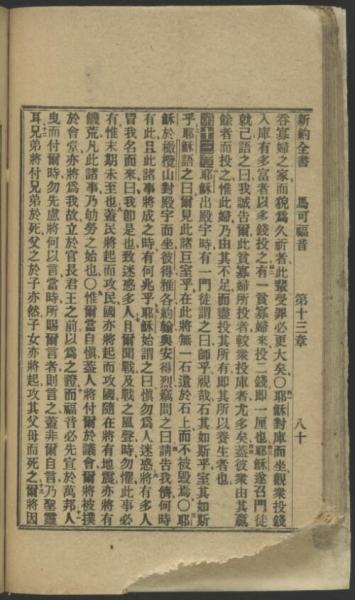 新約全書　馬可福音　第十三章　八十
吞寡婦之家而貌爲久祈者此輩受罪必更大矣〇耶穌對庫而坐觀衆投錢
入庫有多富者以多錢投之有一貧寡婦來投二錢即一厘也耶穌遂召門徒
就己語之曰我誠告爾此貧寡婦所投者較衆投庫者尤多矣蓋彼衆由其贏
餘者而投之惟此婦乃由其不足而盡投其所有即其所以養生者也
第十三章耶穌出殿宇時有一門徒謂之曰師乎視哉石其如斯乎室其如斯
乎耶穌語之曰爾見此諸巨室乎在此將無一石遺於石上而不被毀焉〇耶
穌於橄欖山對殿宇而坐彼得雅各約翰與安得烈竊問之曰請告我儕何時
有此且此諸事將成之時有何兆乎耶穌始謂之曰愼勿爲人迷惑將有多人
冒我名而來曰我即是也致迷惑多人且爾聞戰及戰之風聲時勿懼此事必
有惟末期未至也蓋民將起而攻民國亦將起而攻國隨在將有地震亦將有
饑荒凡此諸事乃劬勞之始也〇惟爾當自愼蓋人將付爾於議會爾將被撲
於會堂亦將爲我故立於官長君王之前以爲之證而福音必先宣於萬邦人
曳而付爾時勿先慮將何以言當時所賜爾言者則言之蓋非爾自言乃聖靈
耳兄弟將付兄弟於死父之於子亦然子女亦將起攻其父母而死之爾將因